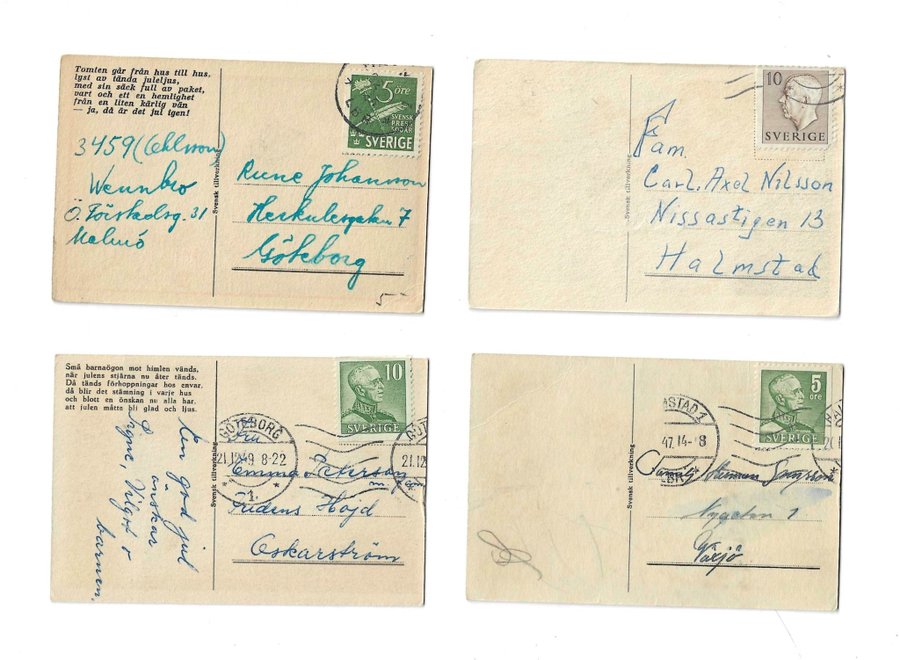 Tomten går från hus till hus,
lyst av tända juleljus,
med sin säck full av paket,
vart och ett en hemlighet
från en liten kärlig vän
— ja, då är det jul igen!
3459 (Oehlsson)
Wennbo
Ö. Förstadsg. 31
Malmö
Svensk tillverkning
5 öre
SVENSK
PRESS
SVERIGE
Rune Johansson
Herkulesgatan 7
Göteborg
5
10
SVERIGE
Svensk tillverkning
Fam.
Carl. Axel Nilsson
Nissastigen 13
Halmstad
Små barnaögon mot himlen vänds,
när julens stjärna nu åter tänds.
Då tänds förhoppningar hos envar,
då blir det stämning i varje hus
och blott en önskan nu alla har,
att julen måtts bli glad och ljus.
En god jul
önskar
Signe, Vilgot o
barnen.
Svensk tillverkning
10
SVERIGE
GÖTEBORG
21.12.49 8-22
1
21.12
Fru
Emma Peterson
Fridens Höjd
Oskarström
5
öre
SVERIGE
STAD 1
47.14-8
Svensk tillverkning
Familj
Växjö